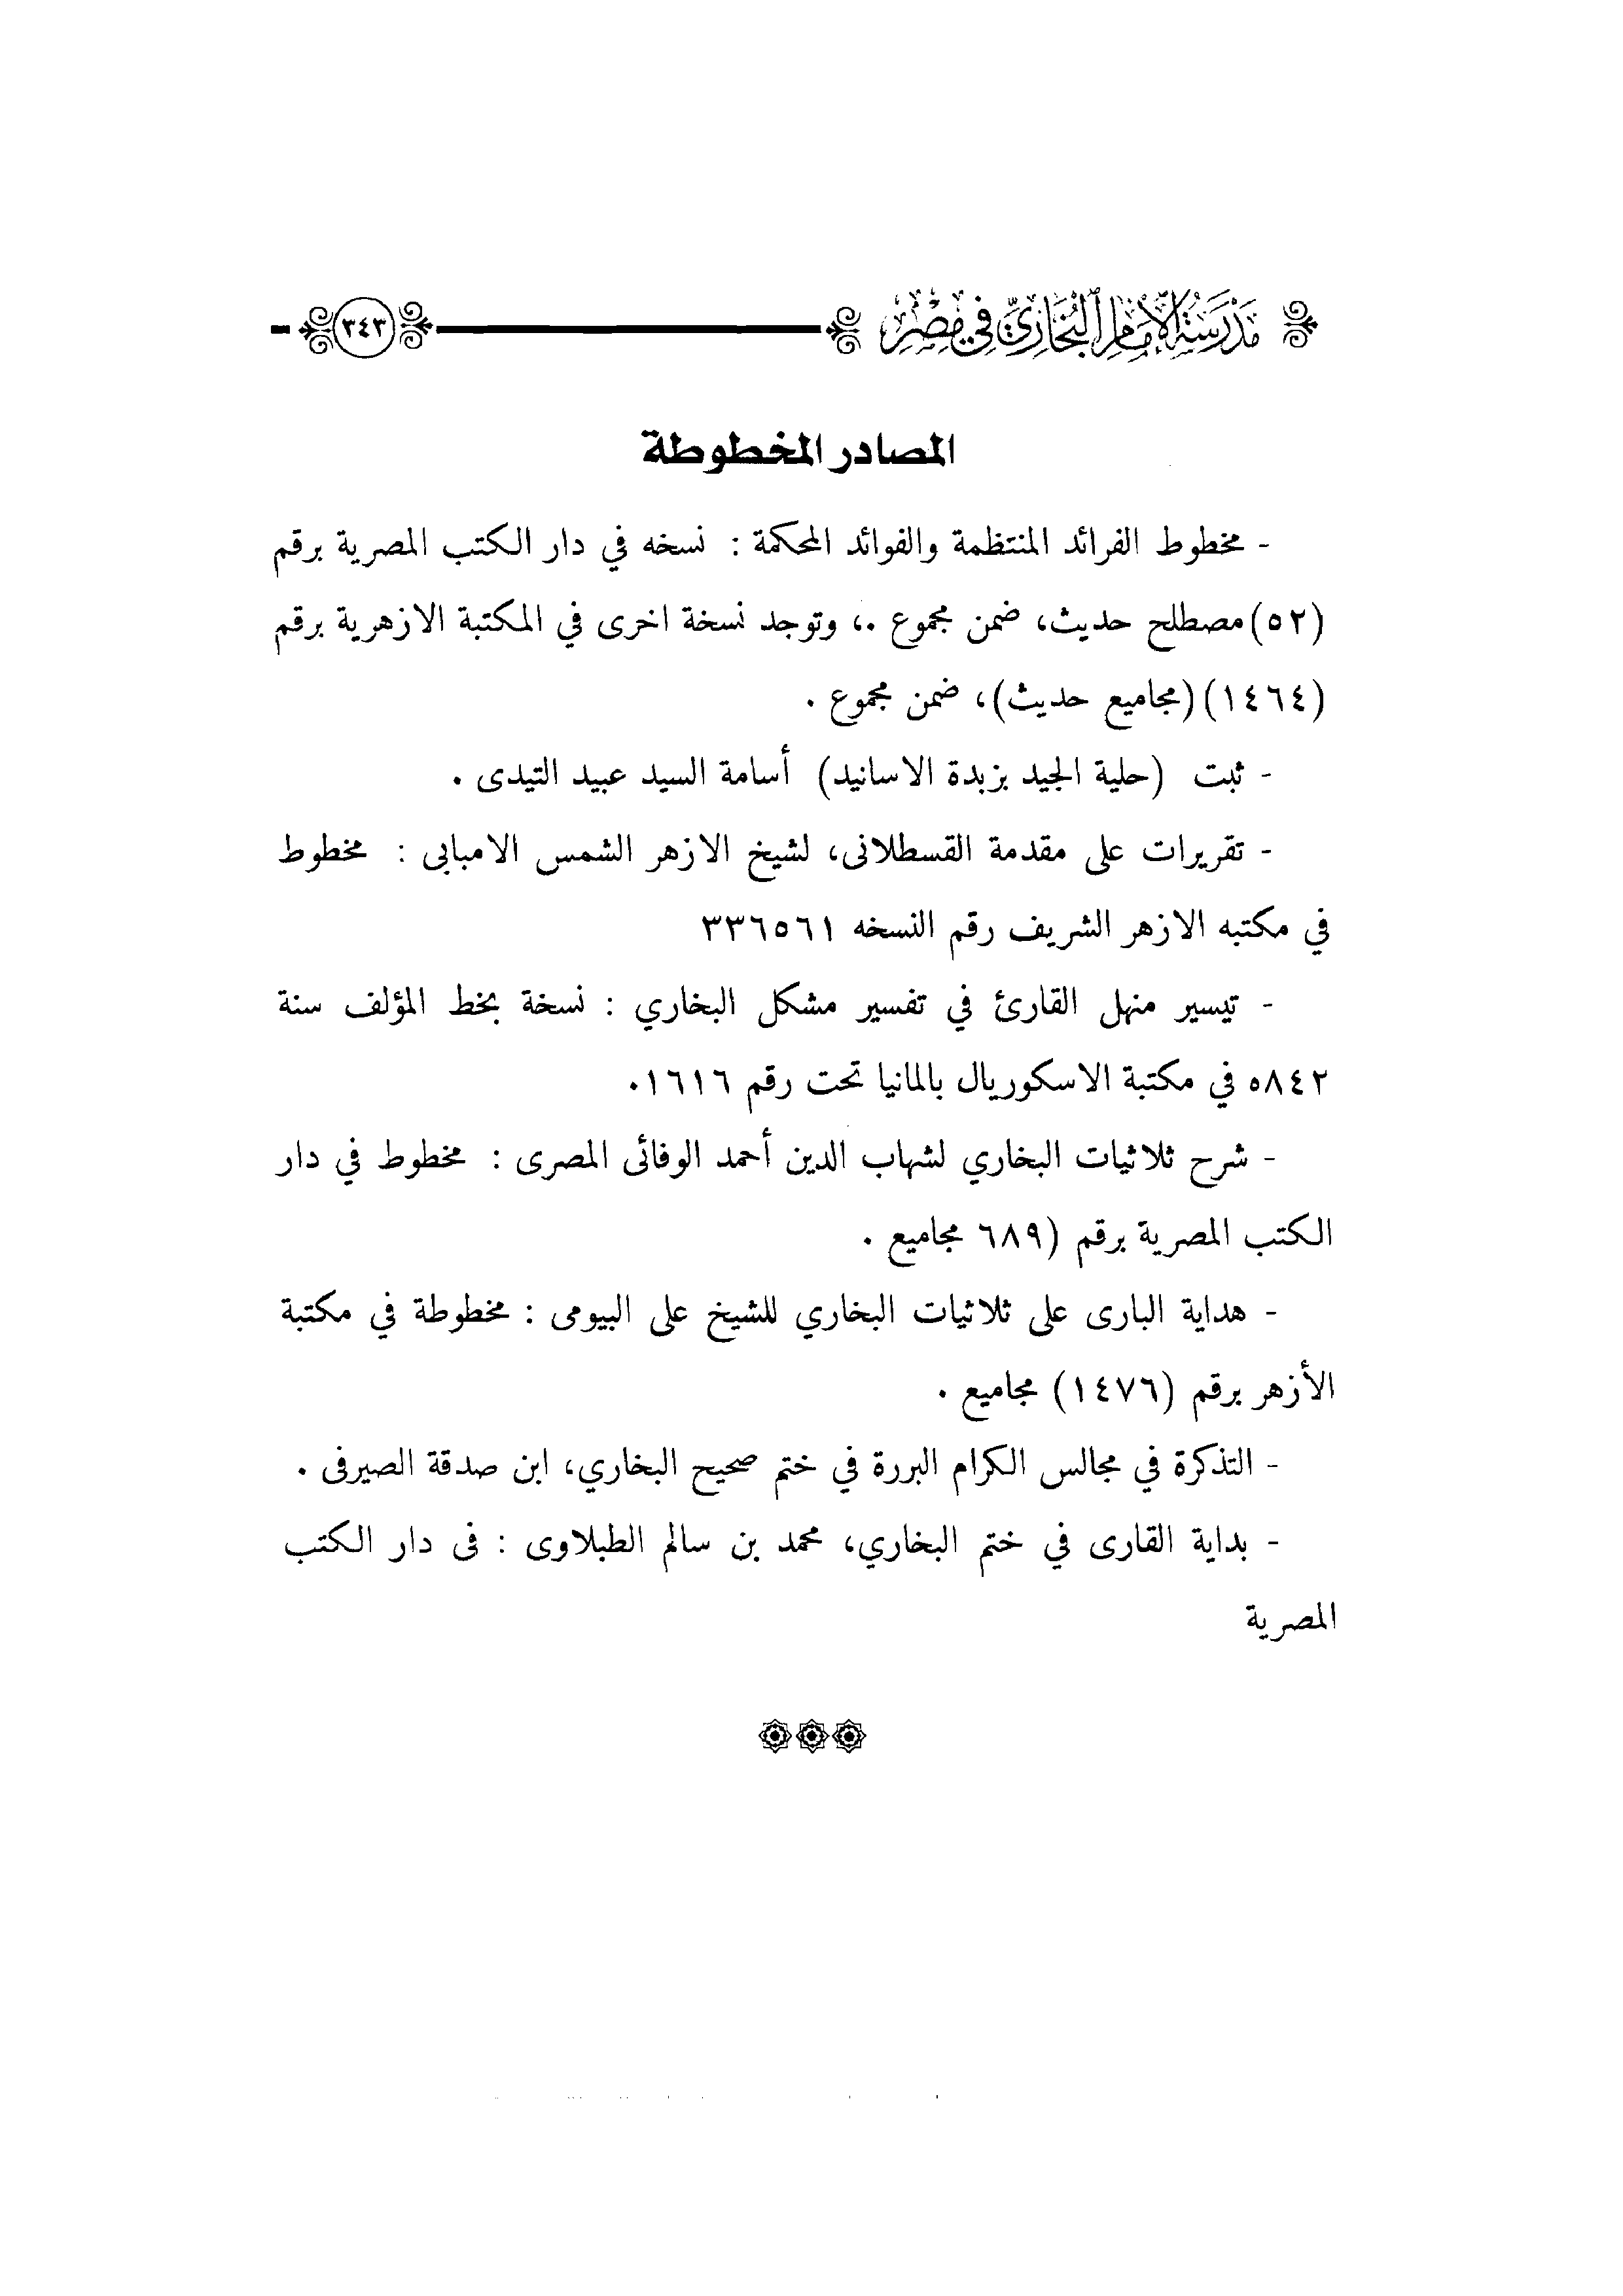 مَدْرَسَةُ الْإِمَامِ الْبُخَارِيِّ فِي مِصْرَ
٣٤٣
المصادر المخطوطة
- مخطوط الفرائد المنتظمة والفوائد المحكمة : نسخه في دار الكتب المصرية برقم
(٥٢)مصطلح حديث، ضمن مجموع .، وتوجد نسخة اخرى في المكتبة الازهرية برقم
(١٤٦٤)(مجاميع حديث)، ضمن مجموع .
- ثبت (حلية الجيد بزبدة الاسانيد) أسامة السيد عبيد التيدى .
- تقريرات على مقدمة القسطلانى، لشيخ الازهر الشمس الامبابى : مخطوط
في مكتبه الازهر الشريف رقم النسخه ٣٣٦٥٦١
- تيسير منهل القارئ في تفسير مشكل البخاري : نسخة بخط المؤلف سنة
٥٨٤٢ في مكتبة الاسكوريال بالمانيا تحت رقم ١٦١٦.
- شرح ثلاثيات البخاري لشهاب الدين أحمد الوفائى المصرى : مخطوط في دار
الكتب المصرية برقم (٦٨٩ مجاميع .
- هداية البارى على ثلاثيات البخاري للشيخ على البيومى : مخطوطة في مكتبة
الأزهر برقم (١٤٧٦) مجاميع .
- التذكرة في مجالس الكرام البررة في ختم صحيح البخاري، ابن صدقة الصيرفى .
- بداية القارى في ختم البخاري، محمد بن سالم الطبلاوى : فى دار الكتب
المصرية